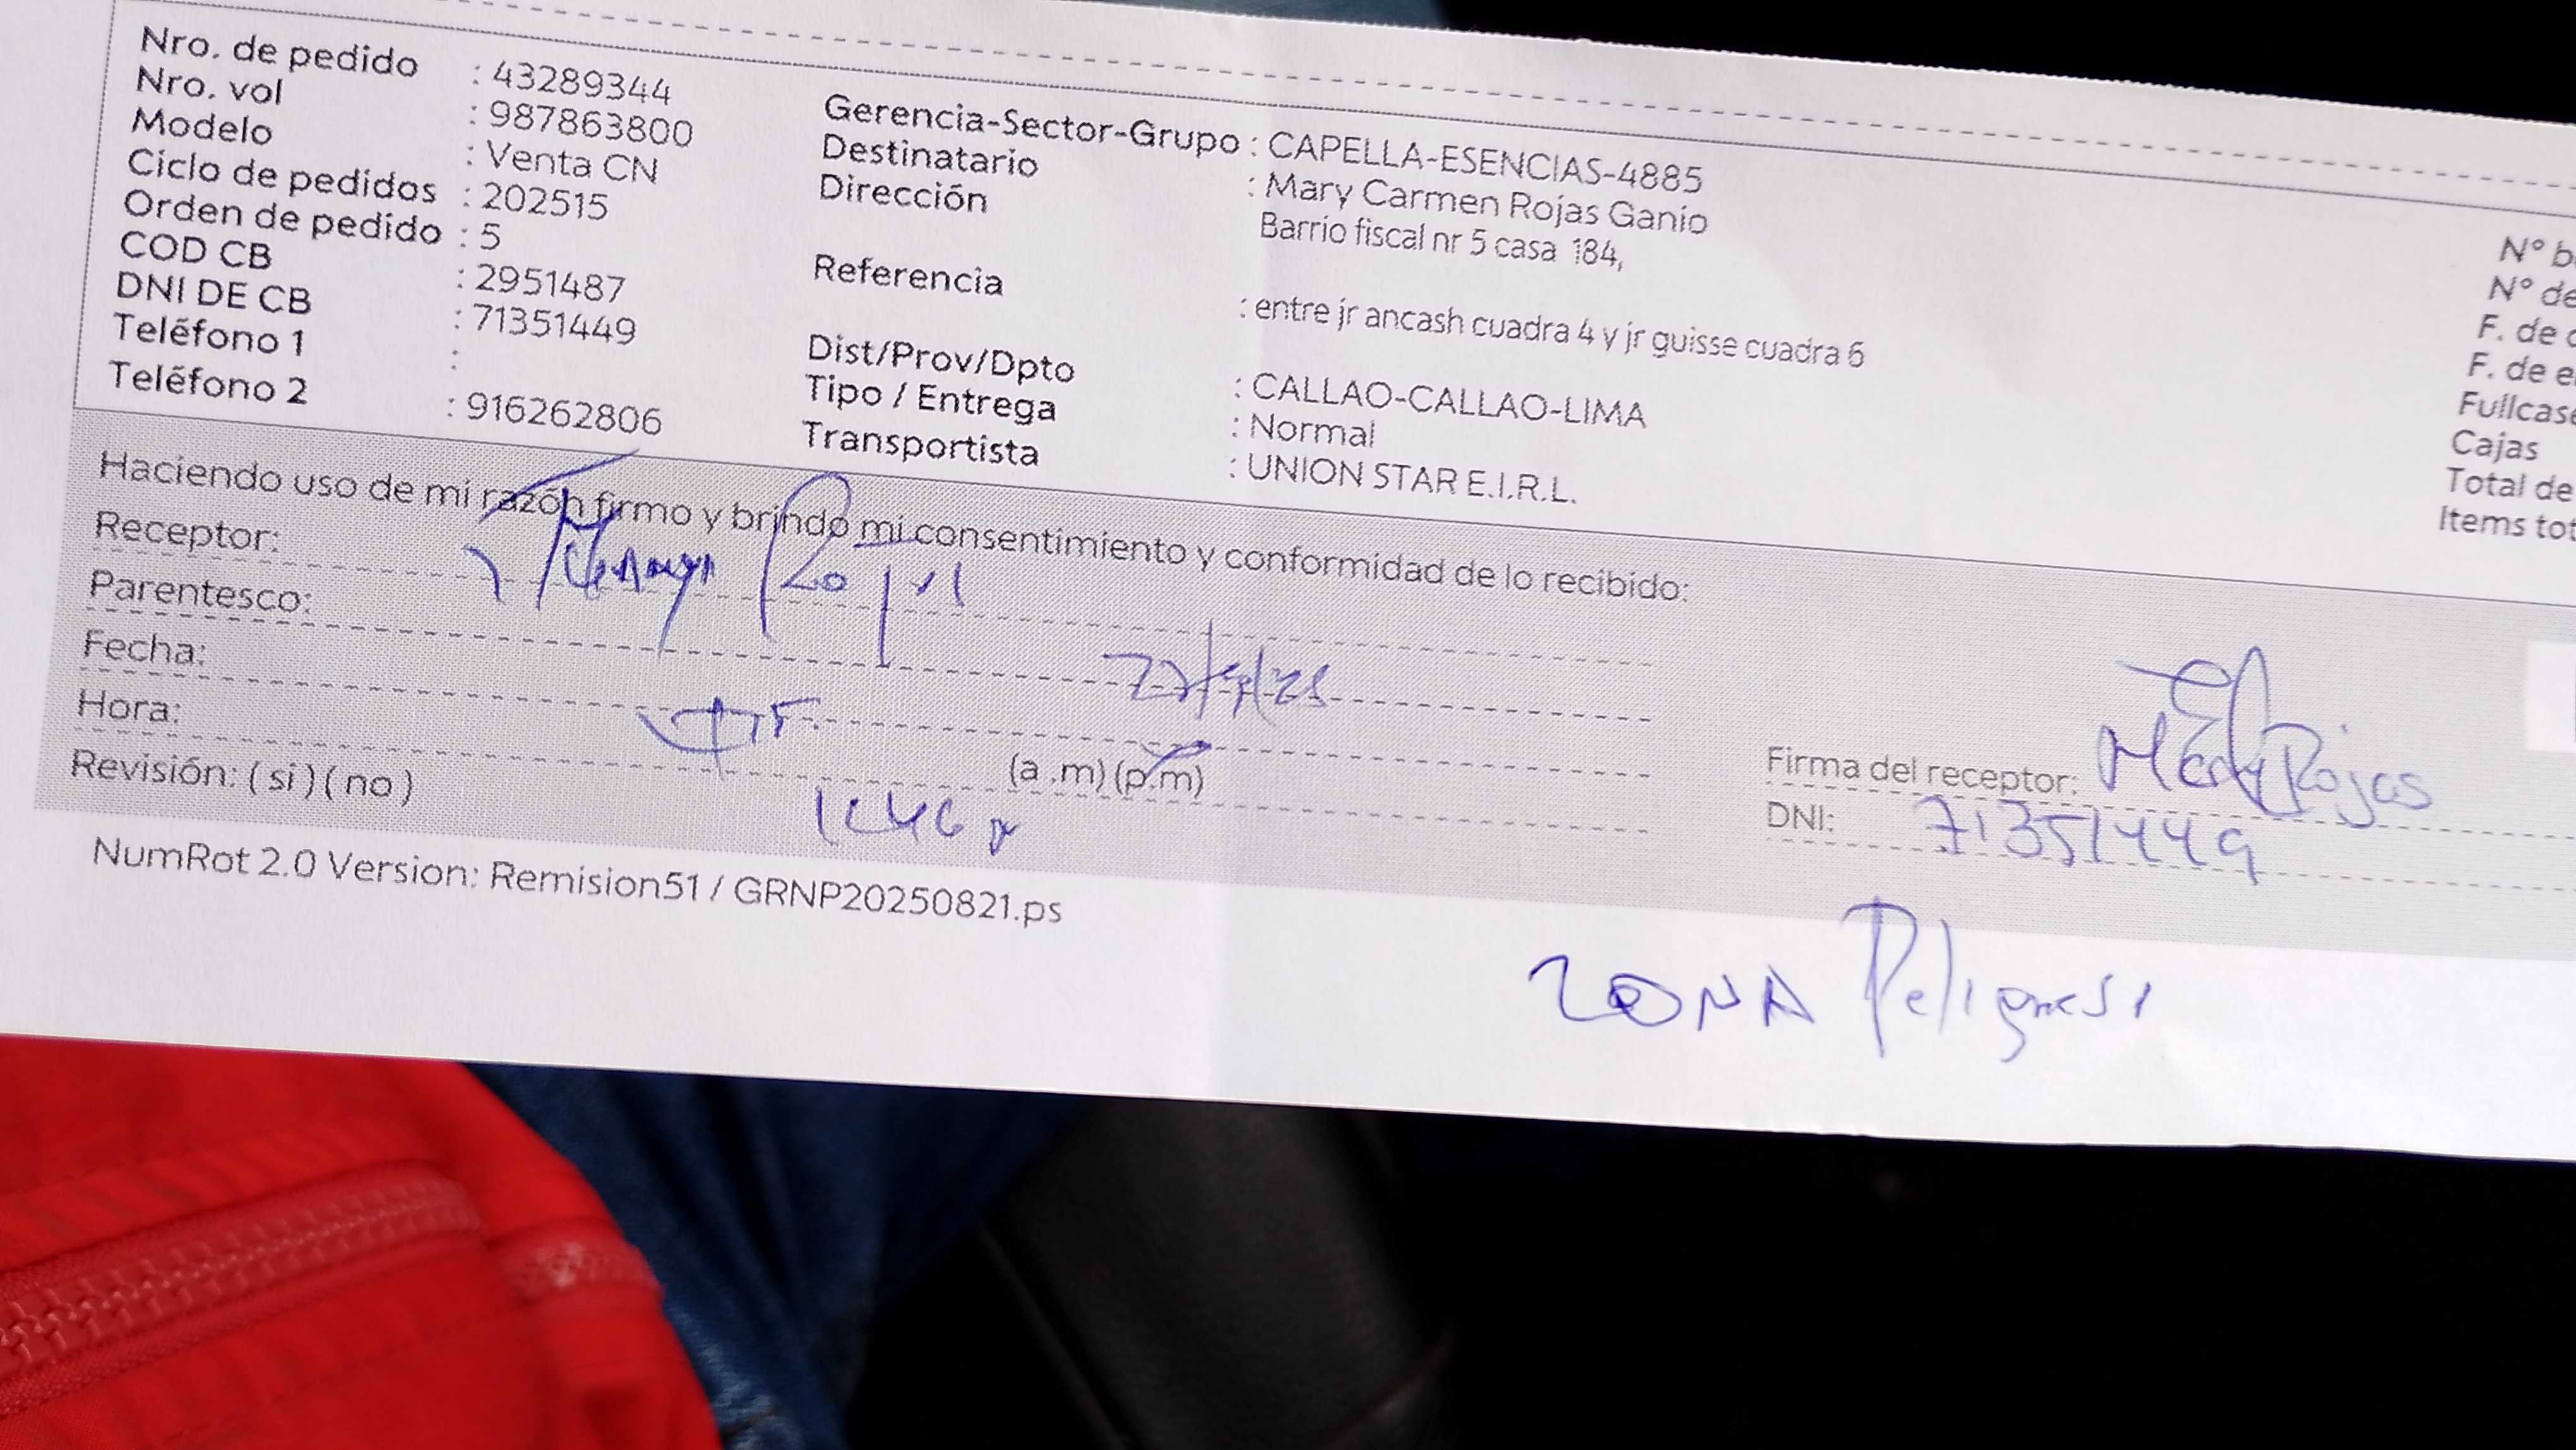 Nro. de pedido : 43289344
Nro. vol : 987863800
Modelo : Venta CN
Ciclo de pedidos : 202515
Orden de pedido : 5
COD CB : 2951487
DNI DE CB : 71351449
Teléfono 1 :
Teléfono 2 : 916262806
Gerencia-Sector-Grupo : CAPELLA-ESENCIAS-4885
Destinatario : Mary Carmen Rojas Ganio
Dirección Barrio fiscal nr 5 casa 184,
Referencia : entre jr ancash cuadra 4 y jr guisse cuadra 6
Dist/Prov/Dpto : CALLAO-CALLAO-LIMA
Tipo / Entrega : Normal
Transportista : UNION STAR E.I.R.L.
N° b
N° de
F. de
F. de e
Fullcase
Cajas
Total de
Items tot
Haciendo uso de mi razón firmo y brindo mi consentimiento y conformidad de lo recibido:
Receptor:
Parentesco:
Fecha:
Hora: (a .m) (p.m)
Revisión: ( si ) ( no )
Firma del receptor: Mery Rojas
DNI: 71351449
NumRot 2.0 Version: Remision51 / GRNP20250821.ps
ZONA Peligrosa